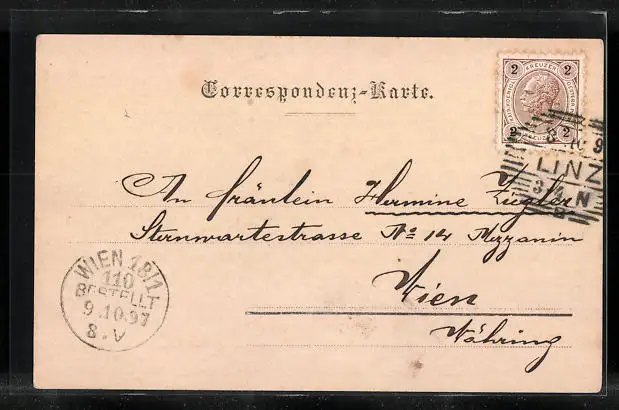 Correspondenz-Karte.
2 KREUZER 2
2 2
8 10 9
LINZ
3-4 N
An Fräulein Hermine Ziegler
Sternwartestrasse No 14 Mezzanin
Wien
Währing
WIEN 18/1
110
BESTELLT
9.10.97
8.V